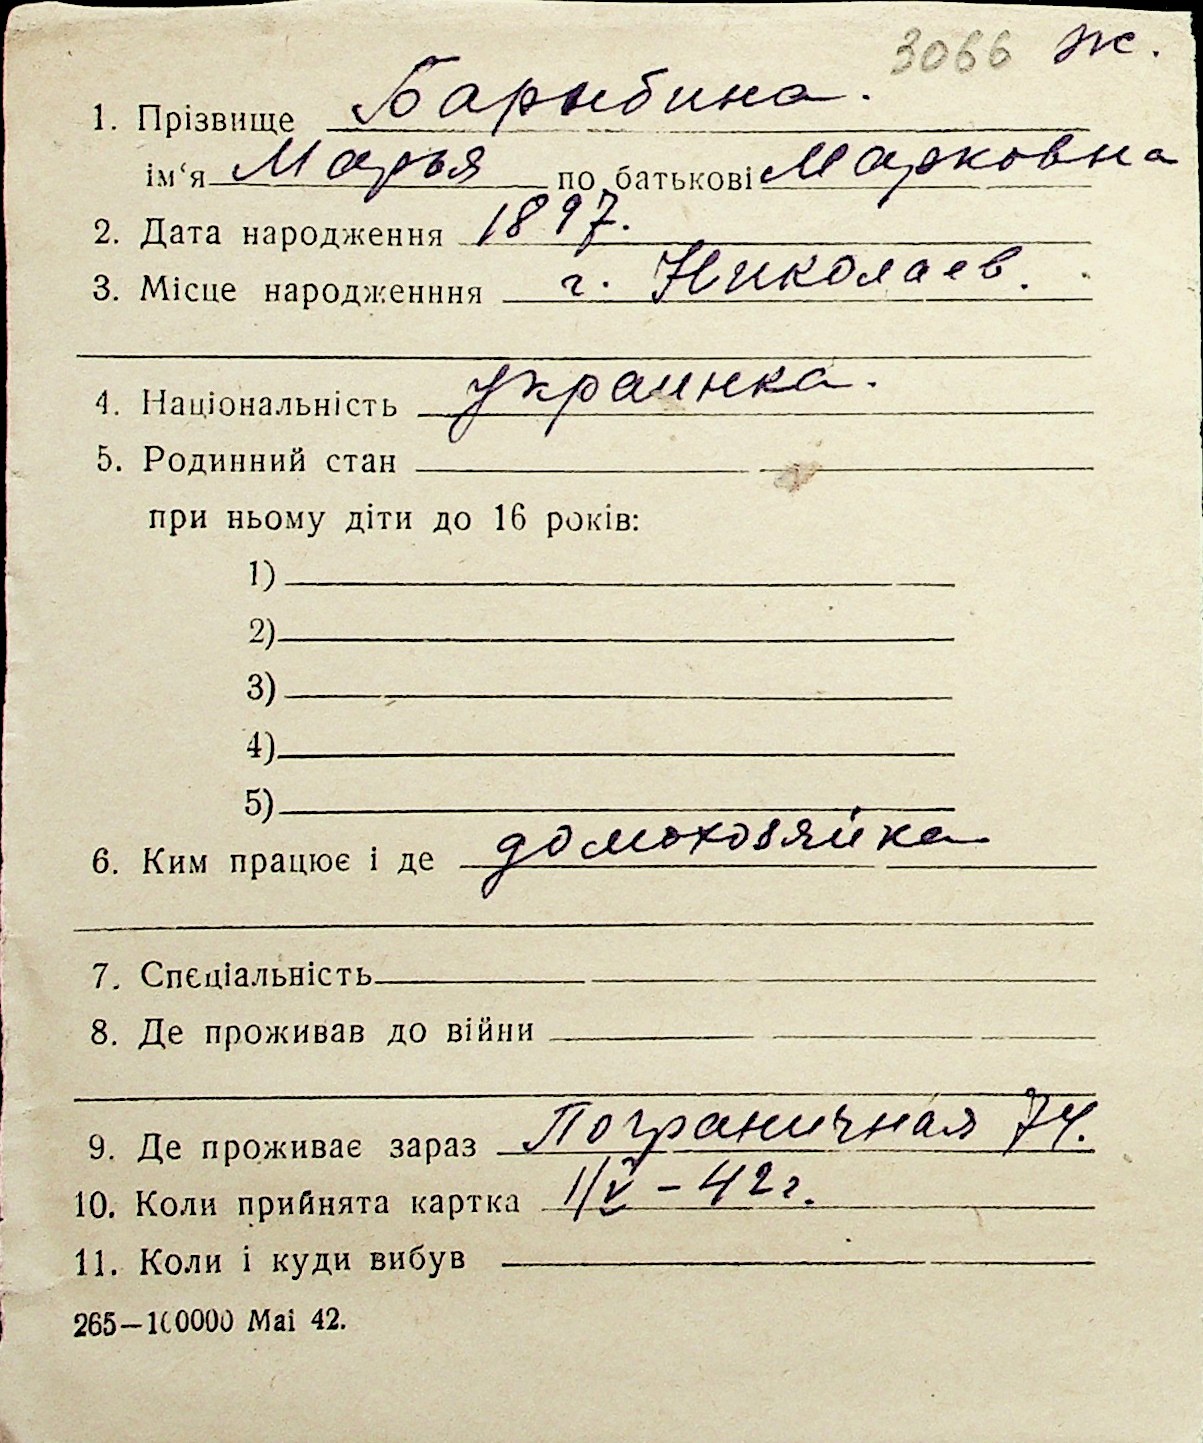 3066 ж.
1. Прізвище Барыбина.
ім‘я Марья по батькові Марковна
2. Дата народження 1897.
3. Місце народженння г. Николаев.
4. Національність украинка.
5. Родинний стан
при ньому діти до 16 років:
1)
2)
3)
4)
5)
6. Ким працює і де домохозяйка
7. Спєціальність
8. Де проживав до війни
9. Де проживає зараз Пограничная 74.
10. Коли прийнята картка 1/V – 42 г.
11. Коли і куди вибув
265—100000 Mai 42.